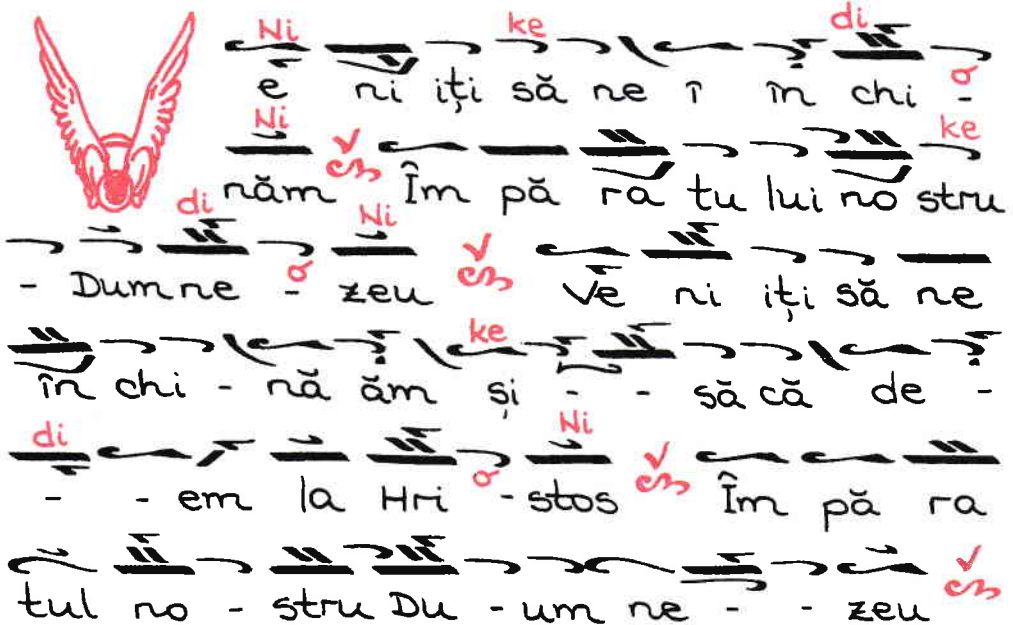 Ni ke di
e ni iți să ne î în chi -
a
Ni ke
năm Îm pă ra tu lui no stru
di Ni
- Dumne - zeu Ve ni iți să ne
a
ke
în chi - nă ăm și - - să că de -
di Ni
- - em la Hri - stos Îm pă ra
a
tul no - stru Du - um ne - - zeu